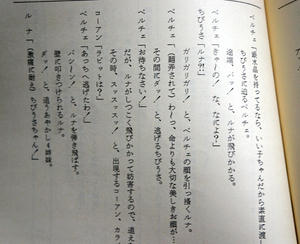 ベルチェ「銀水晶を持ってるなら、いい子ちゃんだから素直に渡し
ちびうさに迫るベルチェ。
途端、バッ！ と、ルナが飛びかかる。
ベルチェ「きゃーの！ な、なによ？」
ちびうさ「ルナ⁈」
ガリガリガリ！ と、ベルチェの顔を引っ掻くルナ。
ベルチェ「（翻弄されて）わーっ、命よりも大切な美しきお顔が…
その間にダッ！ と、逃げるちびうさ。
ベルチェ「お待ちなさい！」
だが、ルナがしつこく飛びかかって妨害するので、追え
その時、スァスァスァ！ と、出現するコーアン、カラ
コーアン「ラビットは？」
ベルチェ「あっちへ逃げたわ！」
バシーン！ と、ルナを弾き飛ばす。
壁に叩きつけられるルナ。
ダッ！ と、追うあやかし４姉妹。
ルナ「（激痛に耐え）ちびうさちゃん！」